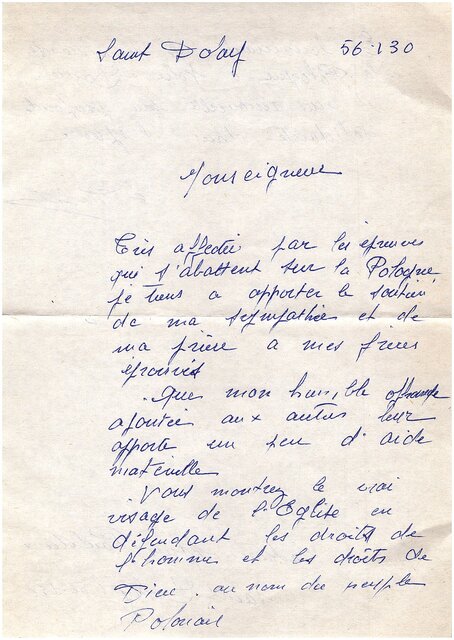 Saint Dolay 56.130
Monseigneur
Très affectée par les épreuves
qui s'abattent sur la Pologne
je tiens a apporter le soutien
de ma sympathie et de
ma prière a mes frères
éprouvés
. Que mon humble offrande
ajoutée aux autres leur
apporte un peu d'aide
matérielle
Vous montrez le vrai
visage de l'Eglise en
défendant les droits de
l'homme et les droits de
Dieu. au nom du peuple
Polonais